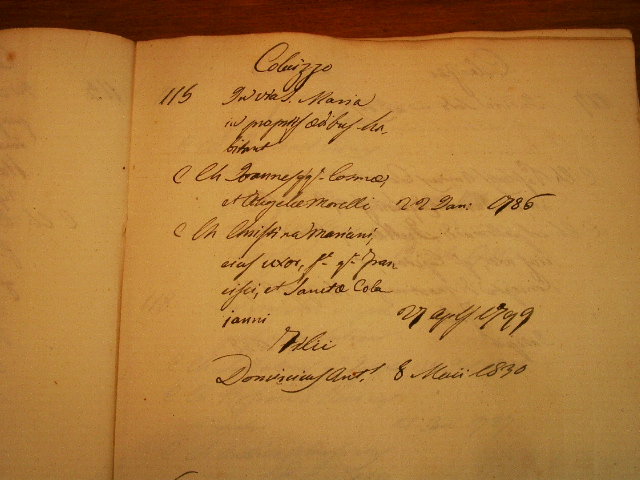 Colaizzo
115 In via S. Maria
in proprijs ædibus ha-
bitant
C Ch Joannes, q.m Cosmæ,
et Angelæ Morelli 22 Jan: 1786
C Ch Christina Mariani,
eius uxor, f.a q.m Fran
cisci, et Sanctæ Cola
ianni 27 April 1799
Filii
Dominicus Ant.s 8 Maii 1830